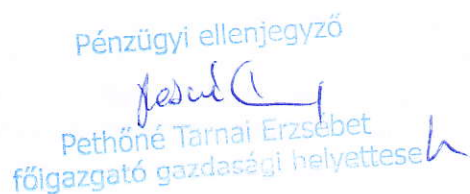 Pénzügyi ellenjegyző
Pethőné Tarnai Erzsébet
főigazgató gazdasági helyettese